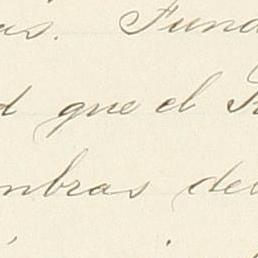 as. Funda
d que el R
mbras del